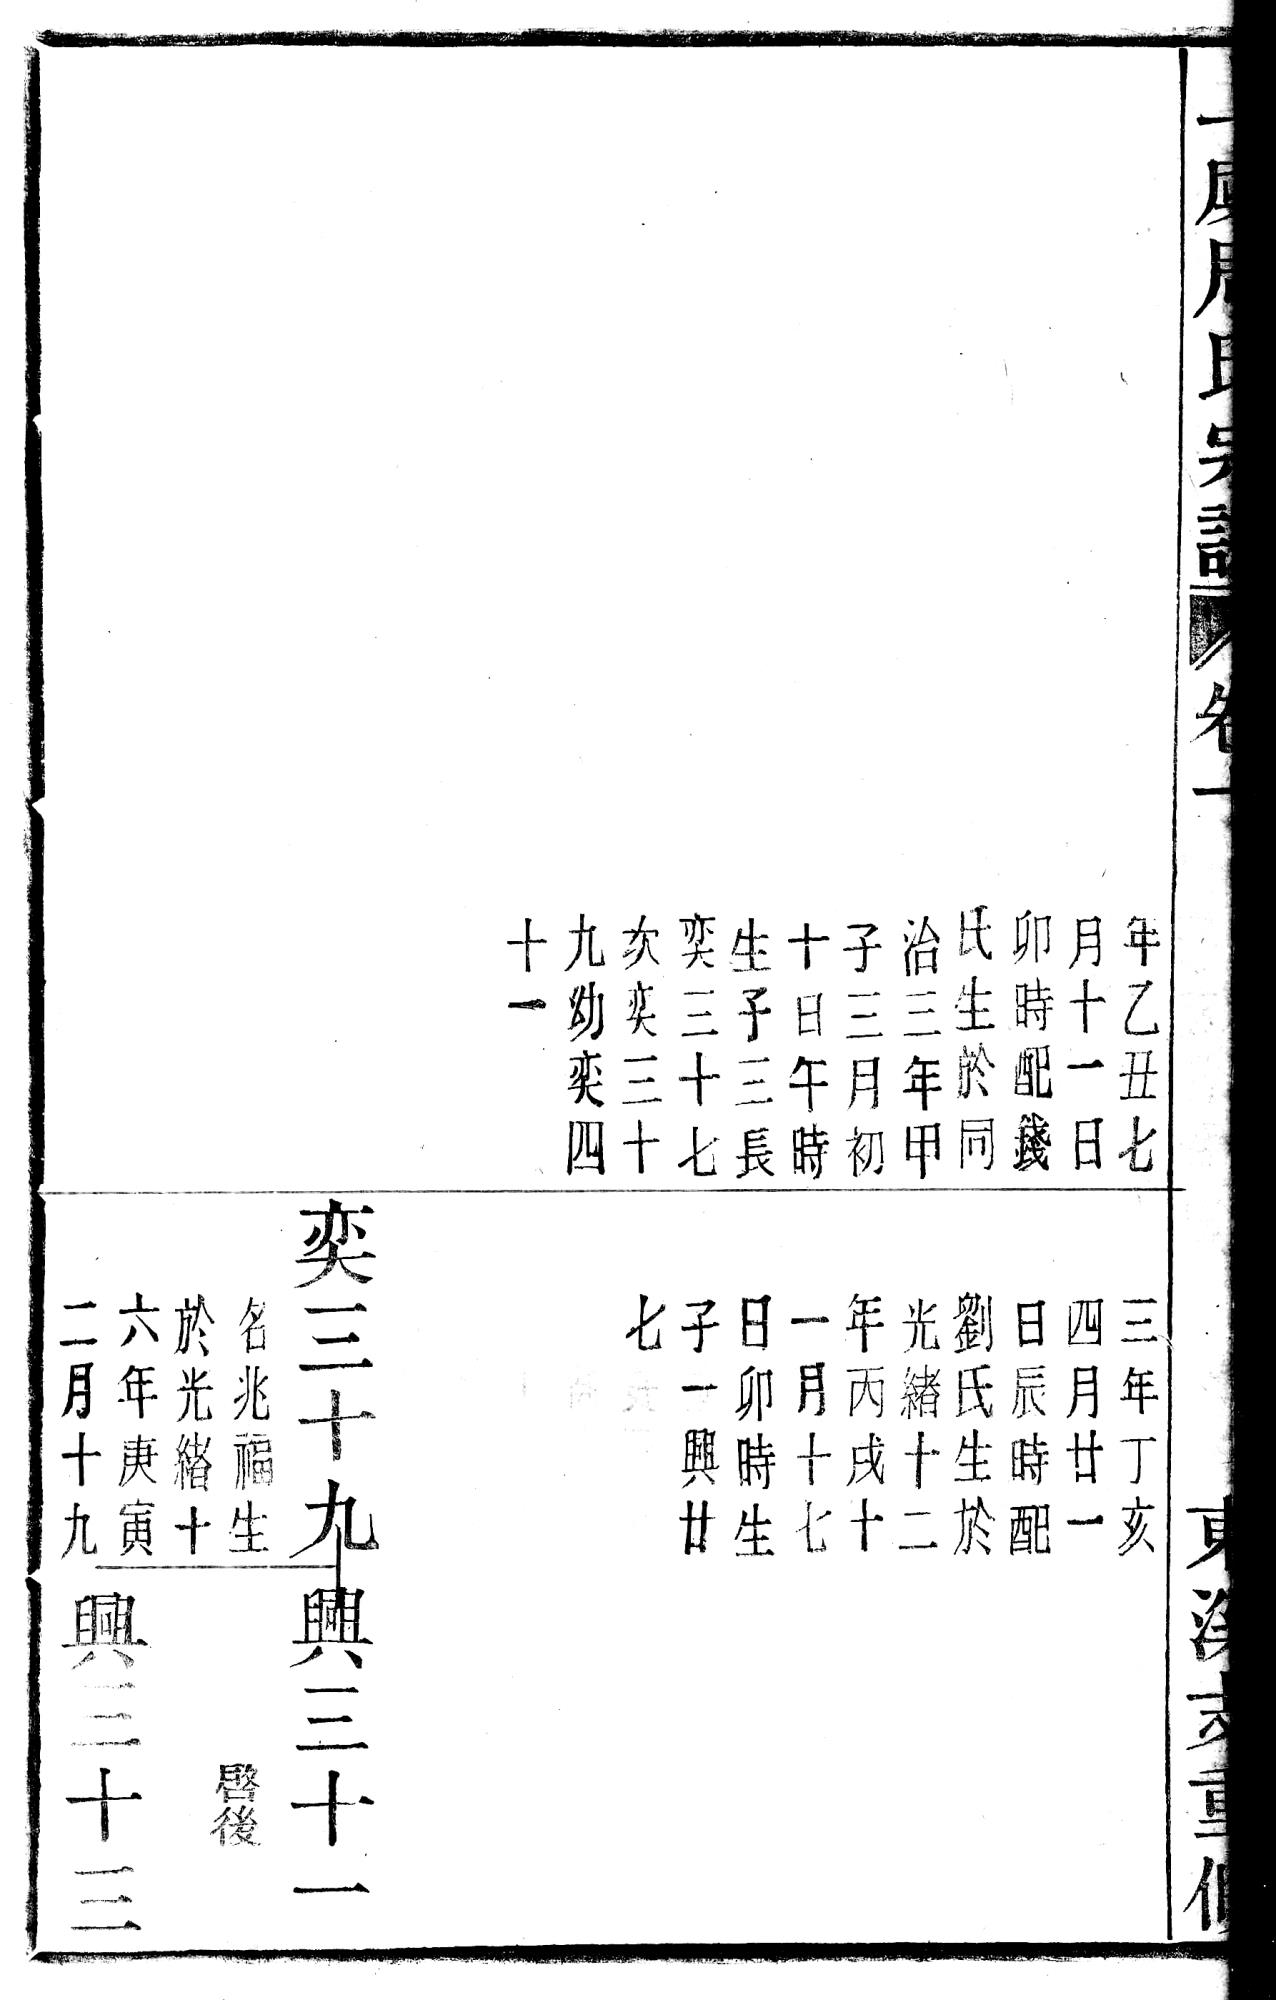 年乙丑七
月十一日
卯時配錢
氏生於同
治三年甲
子三月初
十日午時
生子三長
奕三十七
次奕三十
九幼奕四
十一
三年丁亥
四月廿一
日辰時配
劉氏生於
光緒十二
年丙戌十
一月十七
日卯時生
子一興廿
七
奕三十九
名兆福生
於光緒十
六年庚寅
二月十九
興三十一
啓後
興三十三